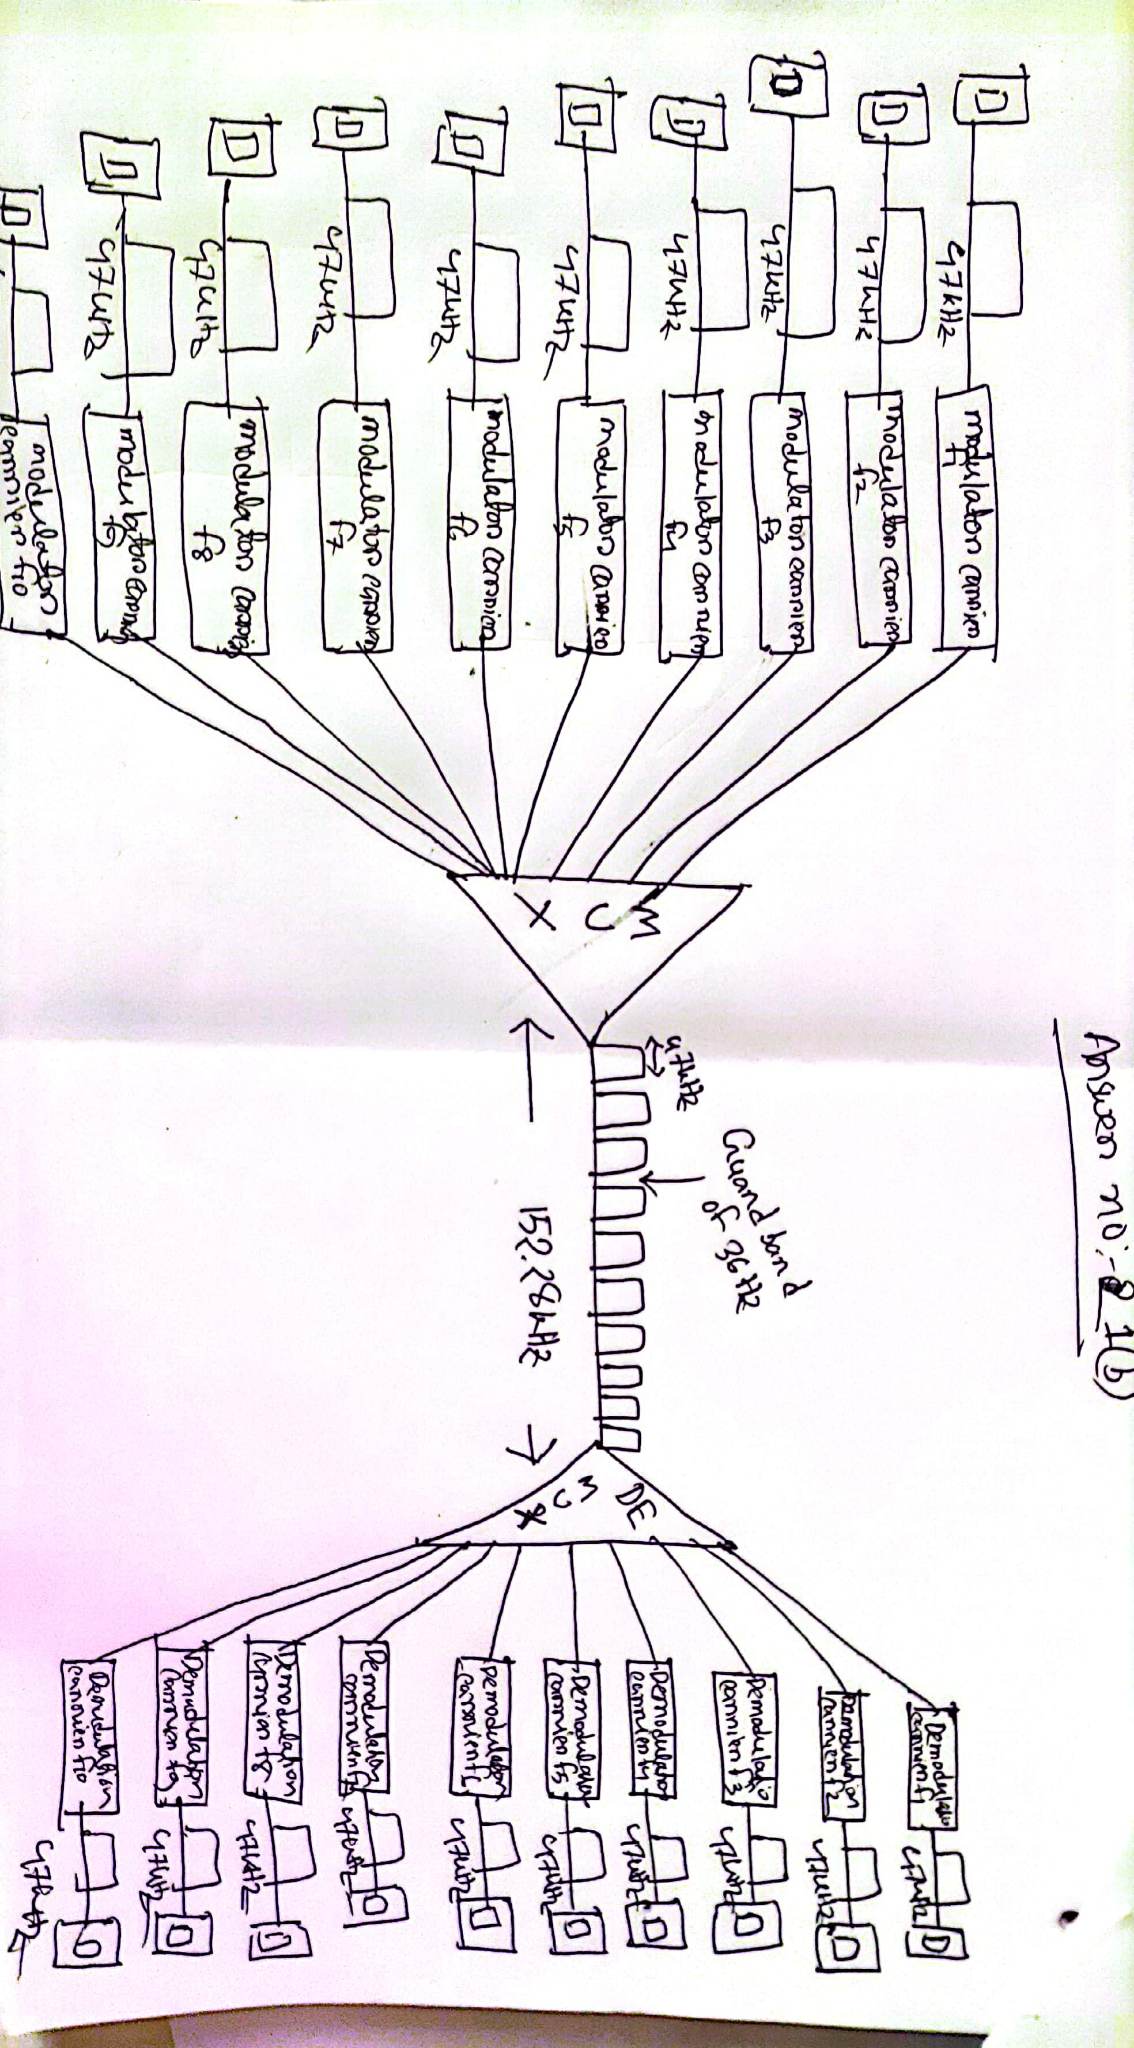 Answer no:- 1(b)
D
47kHz
modulator carrier
f1
D
47kHz
modulator carrier
f2
D
47kHz
modulator carrier
f3
D
47kHz
modulator carrier
f4
D
47kHz
modulator carrier
f5
D
47kHz
modulator carrier
f6
D
47kHz
modulator carrier
f7
D
47kHz
modulator carrier
f8
D
47kHz
modulator carrier
f9
D
modulator
carrier f10
M
U
X
47kHz
Guard band
of 36Hz
152.28kHz
DE
M
U
X
Demodulation
carrier f1
47kHz
D
Demodulation
carrier f2
47kHz
D
Demodulatio
carrier f3
47kHz
D
Demodulation
carrier f4
47kHz
D
Demodulation
carrier f5
47kHz
D
Demodulation
carrier f6
47kHz
D
Demodulation
carrier f7
47kHz
D
Demodulation
carrier f8
47kHz
D
Demodulation
carrier f9
47kHz
D
Demodulation
carrier f10
47kHz
D